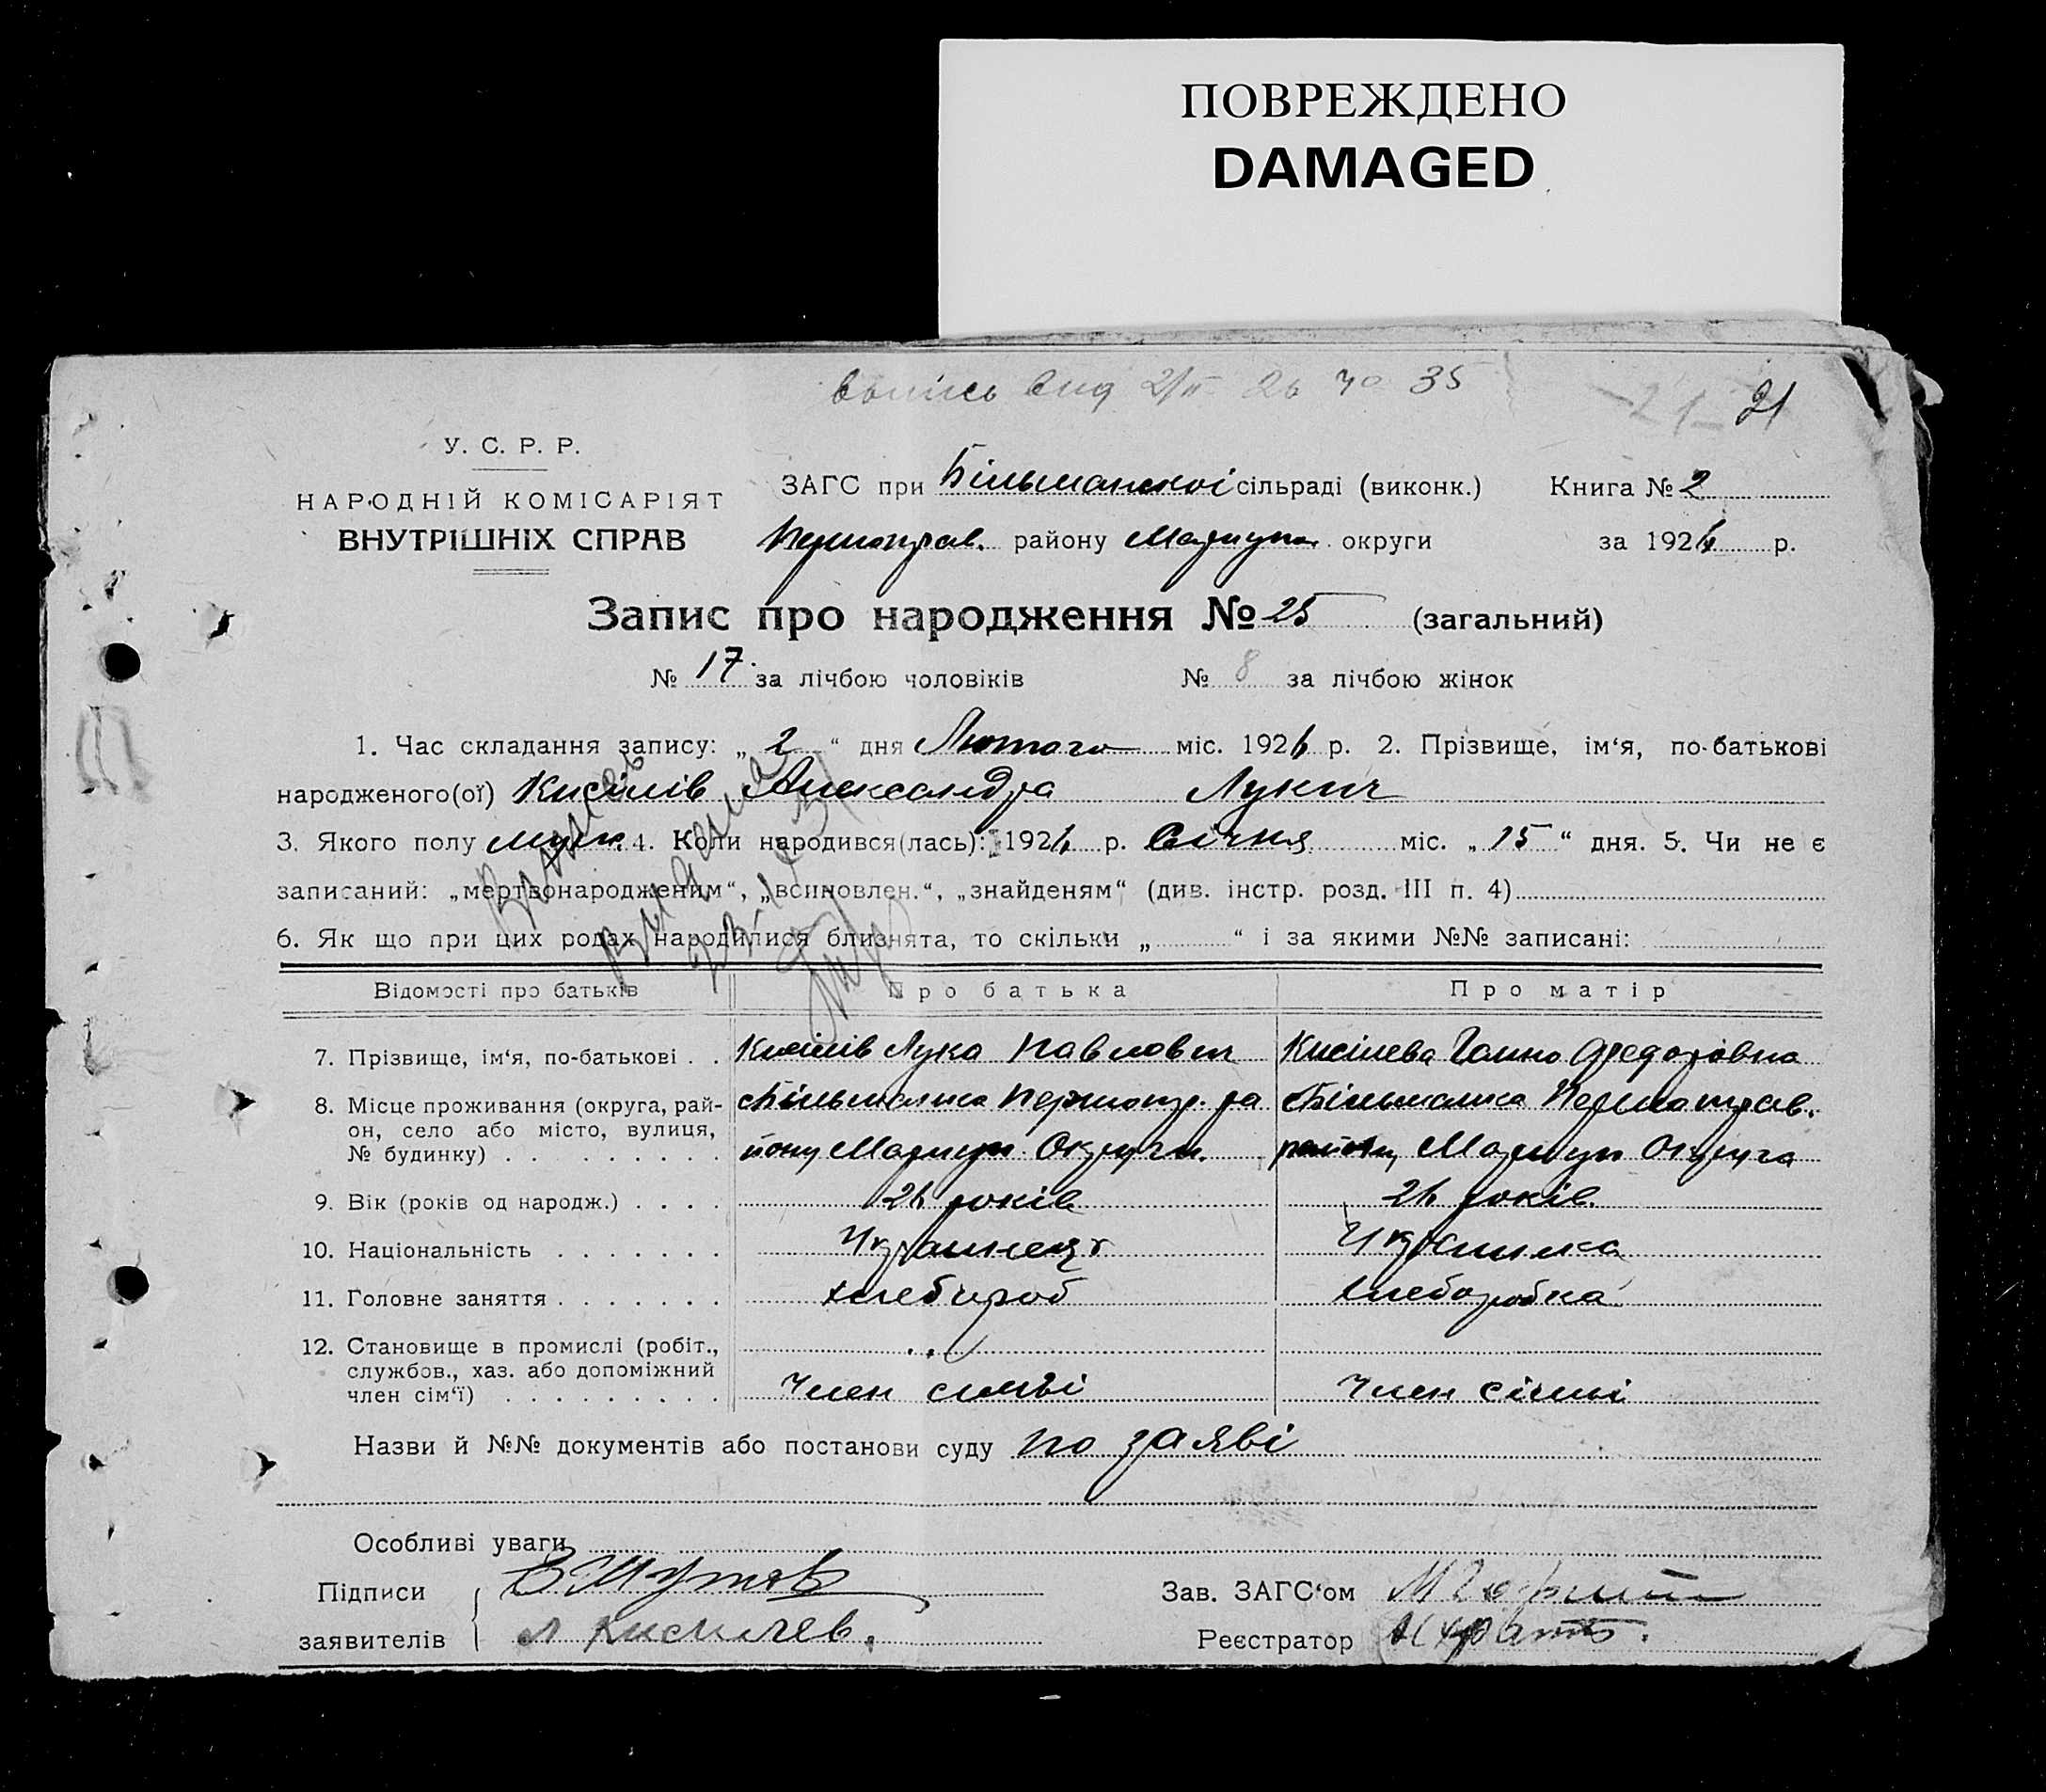 ПОВРЕЖДЕНО
DAMAGED
21
У. С. Р. Р.
НАРОДНІЙ КОМІСАРІЯТ
ВНУТРІШНІХ СПРАВ
ЗАГС при Більманскої сільраді (виконк.) Книга № 2
Першотрав. району Маріуп. округи за 1926 р.
Запис про народження № 25 (загальний)
№ 17 за лічбою чоловіків № 8 за лічбою жінок
1. Час складання запису: „ 2 “ дня Лютого міс. 1926 р. 2. Прізвище, ім‘я, по-батькові
народженого(ої) Кисілів Александра Лукич
3. Якого полу муж. 4. Коли народився(лась): 1926 р. Січня міс. „ 15 “ дня. 5. Чи не є
записаний: „мертвонародженим“, „всиновлен.“, „знайденям“ (див. інстр. розд. III п. 4)
6. Як що при цих родах народилися близнята, то скільки „ “ і за якими №№ записані:
Відомості про батьків Про батька Про матір
7. Прізвище, ім‘я, по-батькові . . Кисілів Лука Павлович Кисілева Ганна Федоровна
8. Місце проживання (округа, рай- Більманка Першотр. ра Більманка Першотрав.
он, село або місто, вулиця,
№ будинку) йону Маріуп. Округи. району Маріуп Округа
9. Вік (років од народж.) . . . . 26 років 26 років.
10. Національність Украинець Украинка
11. Головне заняття хлебороб хлеборобка
12. Становище в промислі (робіт.,
службов., хаз. або допоміжний
член сім‘ї) Член симьі Член сімьі
Назви й №№ документів або постанови суду по заяві
Особливі уваги
Підписи Зав. ЗАГС‘ом
заявителів Л Киселев. Реєстратор